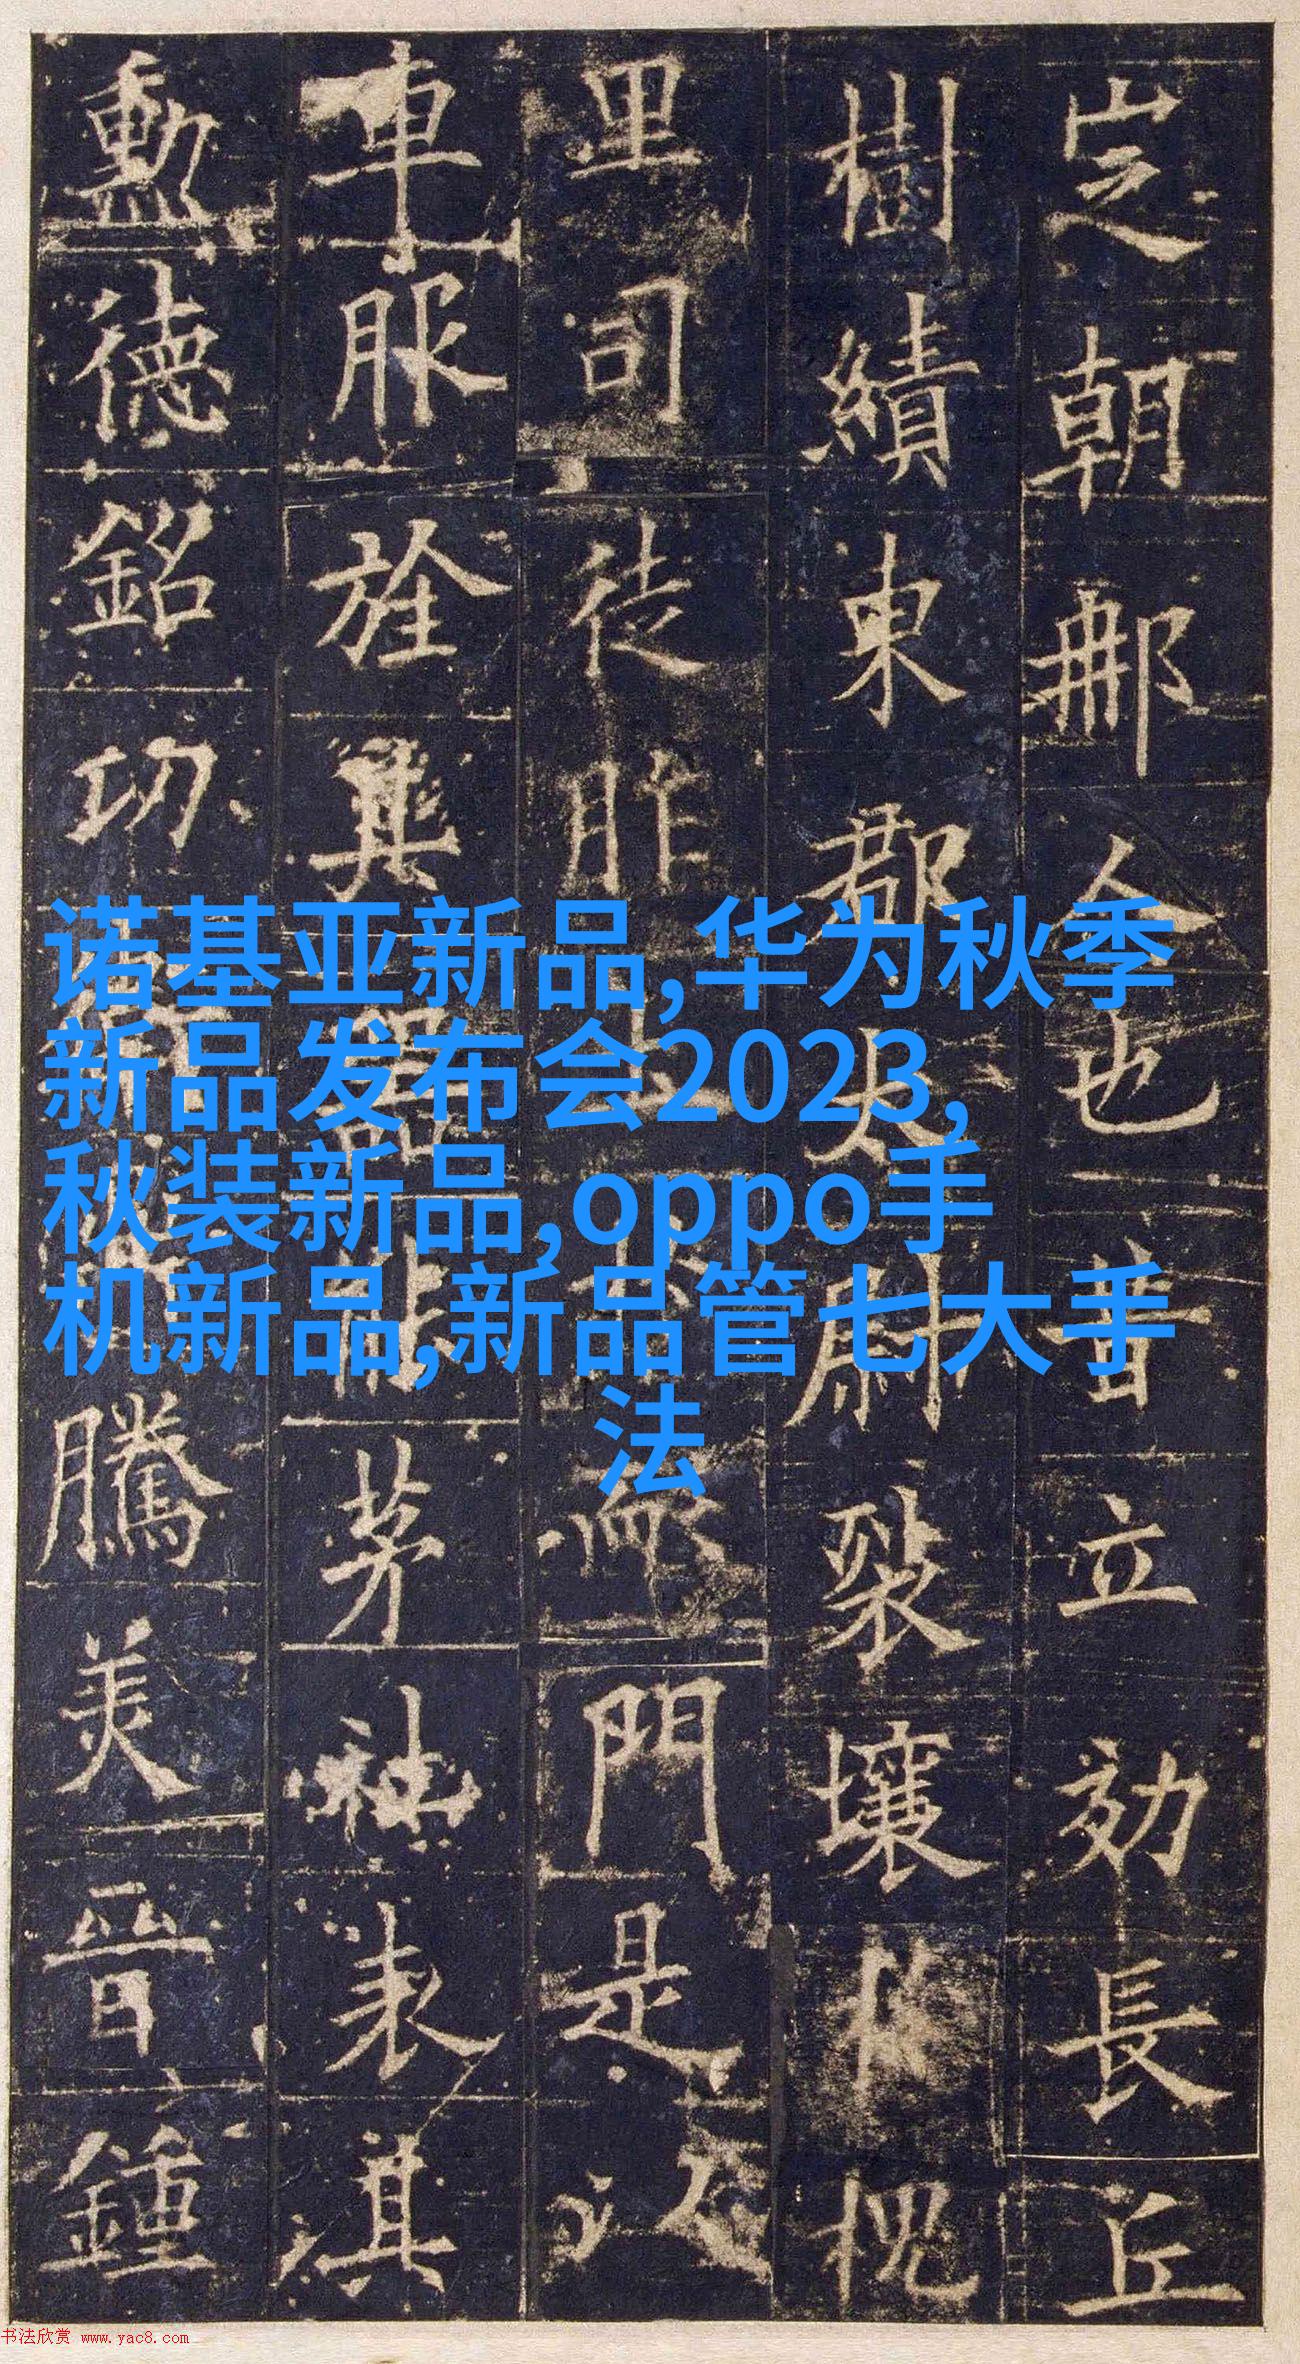 朝那令也昔立効長丘
樹績東郡太尉裂壤槐
里司徒胙土門是以
車服旌其器能茅社表其
勳德銘功騰美晉鍾
诺基亚新品,华为秋季
新品发布会2023,
秋装新品,oppo手
机新品,新品管七大手
法
书法欣赏 www.yac8.com